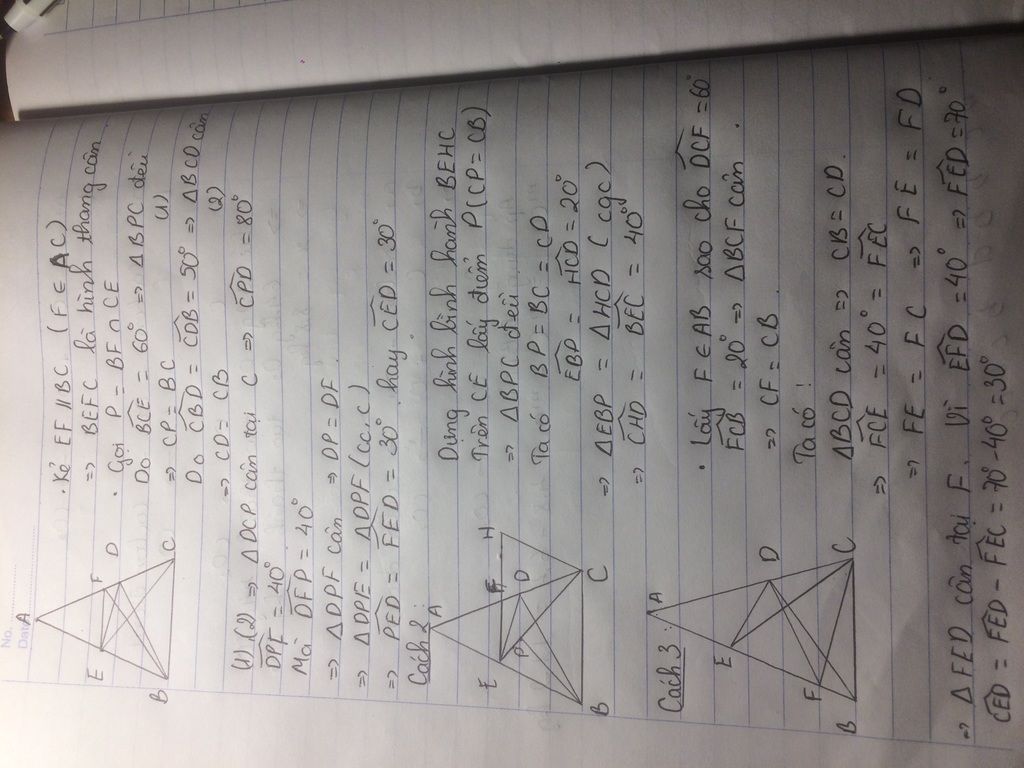 No.
Date
A
E
F
D
B
C
· Kẻ EF // BC (F ∈ AC)
⇒ BEFC là hình thang cân
· Gọi P = BF ∩ CE
Do BCE = 60° ⇒ ΔBPC đều
⇒ CP = BC (1)
Do CBD = CDB = 50° ⇒ ΔBCD cân
⇒ CD = CB (2)
(1), (2) ⇒ ΔDCP cân tại C ⇒ CPD = 80°
DPF = 40°
Mà DFP = 40°
⇒ ΔDPF cân ⇒ DP = DF
⇒ ΔDPE = ΔDPF (c.c.c)
⇒ PED = FED = 30° hay CED = 30°
Cách 2:
A
E
F
H
P
D
B
C
Dựng hình bình hành BEHC
Trên CE lấy điểm P (CP = CB)
⇒ ΔBPC đều
Ta có BP = BC = CD
EBP = HCD = 20°
⇒ ΔEBP = ΔHCD (cgc)
⇒ CHD = BEC = 40°
Cách 3:
A
E
D
F
B
C
· Lấy F ∈ AB sao cho DCF = 60°
FCB = 20° ⇒ ΔBCF cân.
⇒ CF = CB
Ta có:
ΔBCD cân ⇒ CB = CD.
⇒ FCE = 40° = FEC
⇒ FE = FC ⇒ FE = FD
⇒ ΔFED cân tại F. Vì EFD = 40° ⇒ FED = 70°
CED = FED - FEC = 70° - 40° = 30°